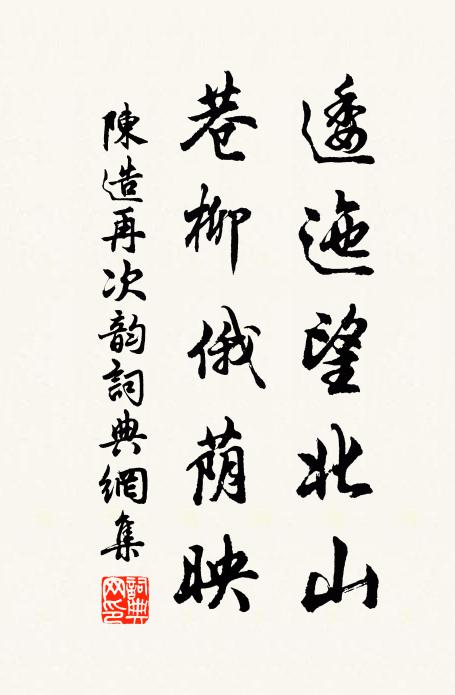 逶迤望北山
巷柳俄荫映
陳造再次韵詞典網集
詞典网印